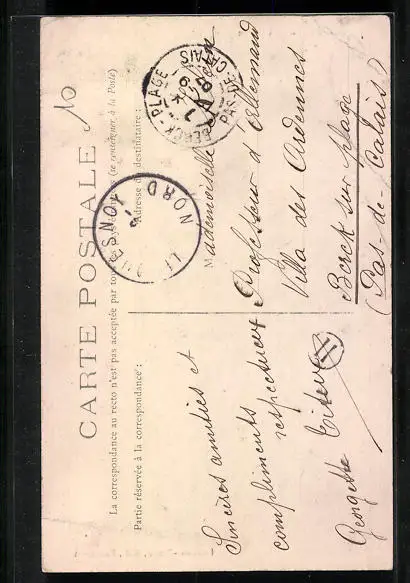 CARTE POSTALE
La correspondance au recto n'est pas acceptée par tous les pays étrangers (se renseigner à la Poste)
Partie réservée à la correspondance:
Adresse du destinataire:
Sincères amitiés et
compliments
respectueux
Georgette
Mademoiselle
Professeur d'Allemand
Villa des Ardennes
Berck sur plage
(Pas-de-Calais)
BERCK-PLAGE
PAS-DE-CALAIS
LE QUESNOY
NORD